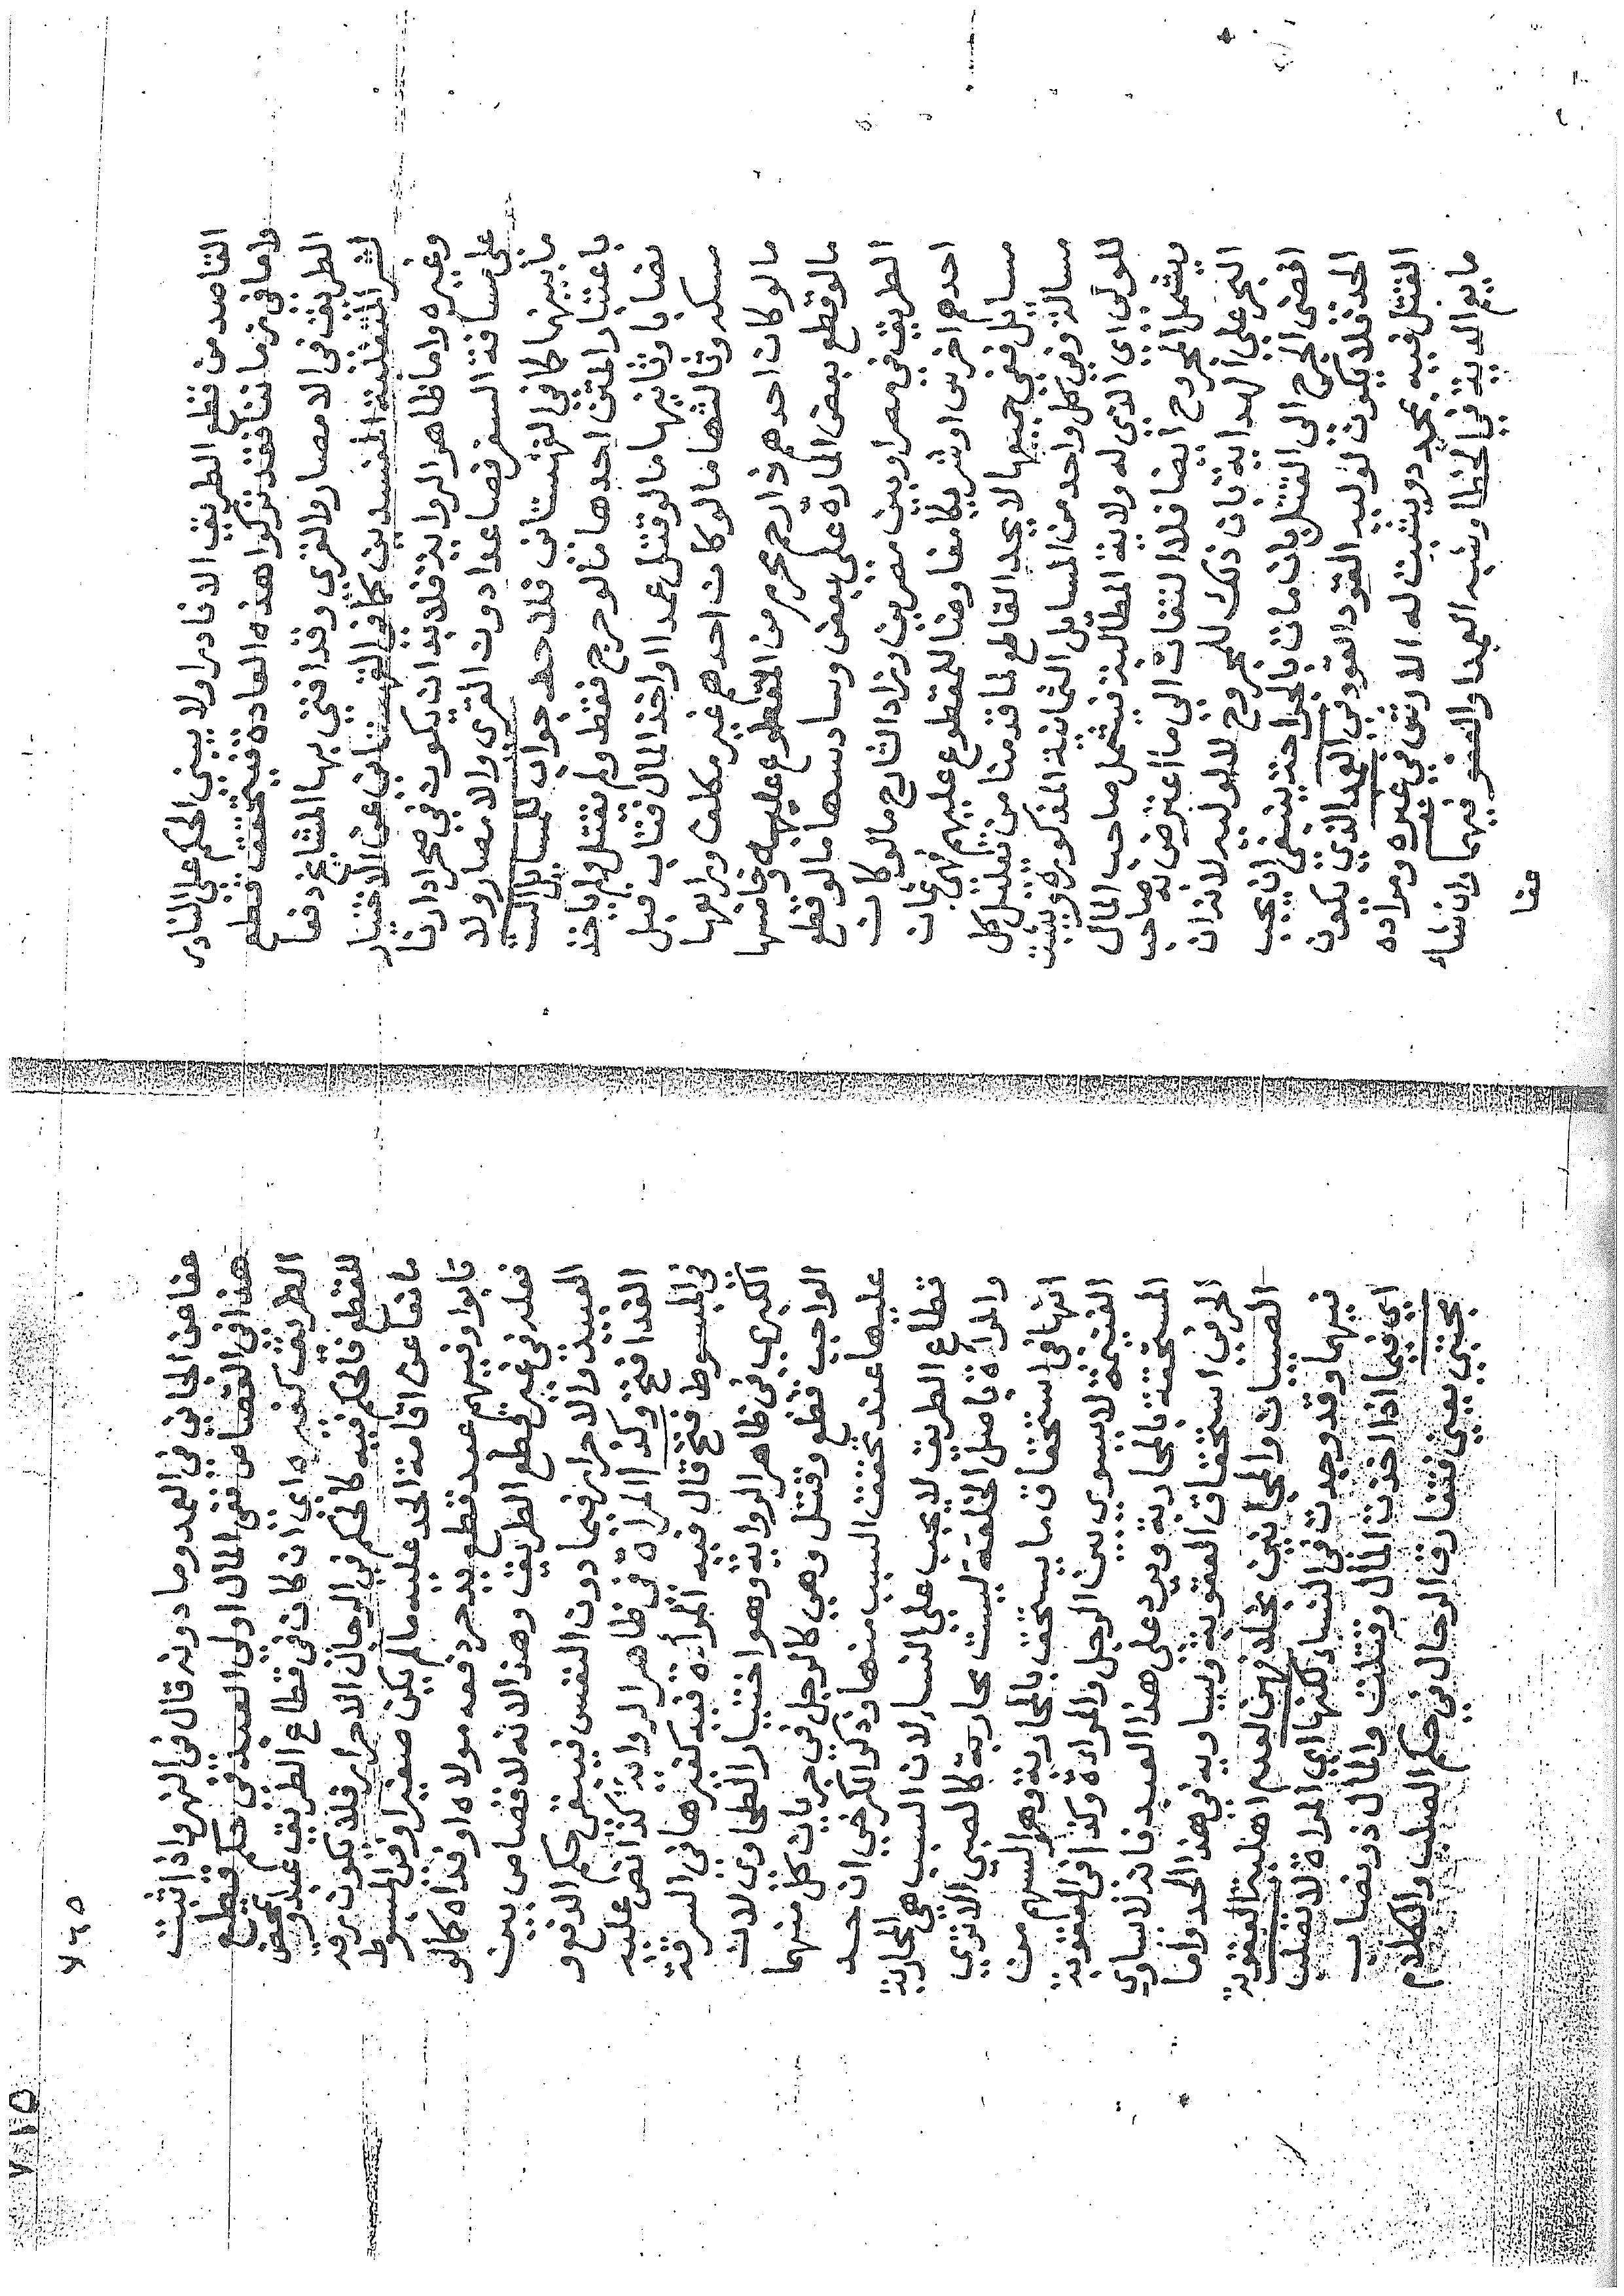 القاصد من قطع الطريق الا نادرا ولا يبنى الحكم على النادر
واما في زماننا فقد تركوا هذه العاده فيتحقق قطع
الطريق في الامصار والقرى وقد افتى بها المشايخ دفعا
لشر المتغلبة المفسدين كما في القهستاني عن الاختيار
وغيره واما ظاهر الرواية فلا بد ان يكون في صحرا دارنا
على مسافة السفر فصاعدا دون القرى والامصار ولا
ما بينهما كما في القهستاني فلا حد جواب للمسايل الست
باعتبار المتن احدها ما لو جرح فقط ولم يقتل ولم ياخذ
نصابا وثانيها ما لو قتل عمدا واخذ المال فتاب قبل
مسكه وثالثها ما لو كان احدهم غير مكلف ورابعها
ما لو كان احدهم ذا رحم محرم من المقطوع عليهم وخامسها
ما لو قطع بعض الماره على بعض وسادسها ما لو قطع
الطريق في مصر او بين مصرين وزاد الشارح ما لو كان
احدهم اخرس او شريكا مفاوضا للمقطوع عليهم فهي ثمان
مسايل ففي جميعها لا يحد القاطع لما قدمنا من تعليل كل
مسالة وفي كل واحد من المسايل الثمانية المذكوره ويثبت
للولى اي الذي له ولاية المطالبة فيشمل صاحب المال
ويشمل المجروح ايضا فلا التفات الى ما اعترض به صاحب
البحر على الهداية بان ذلك للمجروح لا لوليه لانه ان
افضى الجرح الى القتل بان مات بالجراحة ينبغي ان يجب
الحد فلا يكون لوليه القود القود في العمد الذي يكون
القتل فيه بمحدد ويثبت له الارش في غيره ومراده
ما يعم الدية في الخطا وشبه العمد والعفو فيهما وان شاء
عفا
عفا عن الجاني في العمد وما دونه قال في النهر واذا ثبت
هذا في القصاص ففي المال اولى العبد في حكم قطع
الطريق كغيره اي ان كان في قطاع الطريق عبد وبين
للقطع فالحكم فيه كالحكم في الرجال الاحرار فلا يكون رقه
مانعا عن اقامة الحد عليه ما لم يكن صغيرا وفي المبسوط
تابوا وفيهم عبد قطع يد حر دفعه مولاه او فداه كما لو
فعله في غير قطع الطريق وهذا لانه لا قصاص بين
العبيد والاحرار فيما دون النفس فيبقى حكم الدفع و
الفدا فتح وكذا المراه في ظاهر الرواية كذا نص عليه
في المبسوط فتح قال فيه المرأه فيه كغيرها في السرقة
الكبرى في ظاهر الرواية وهو اختيار الطحاوي لان
الواجب قطع وقتل وهي كالرجل في جريان كل منهما
عليها عند تحقق السبب منها وذكر الكرخي ان حد
قطاع الطريق لا يجب على النساء لان السبب هي المحاربة
والمرأة باصل الخلقة ليست محاربة كالصبي الا ترى
انها في استحقاق ما يستحق بالمحاربة وهو السهم من
الغنيمة لا يسوى بين الرجل والمراة وكذا في العقوبة
المستحقة بالمحاربة ويرد على هذا العبد فانه لا يساوي
الحر في استحقاق العقوبة ويساويه في هذا الحد واما
الصبيان والمجانين بخلافهن لعدم اهلية العقوبة
فيهما وقد وجدت في النساء لكنها اي المراة لا تصلب
اي فيما اذا اخذت المال وقتلت والمال ذو نصاب
مجتبى يعني فتفارق الرجال في حكم الصلب والكلام